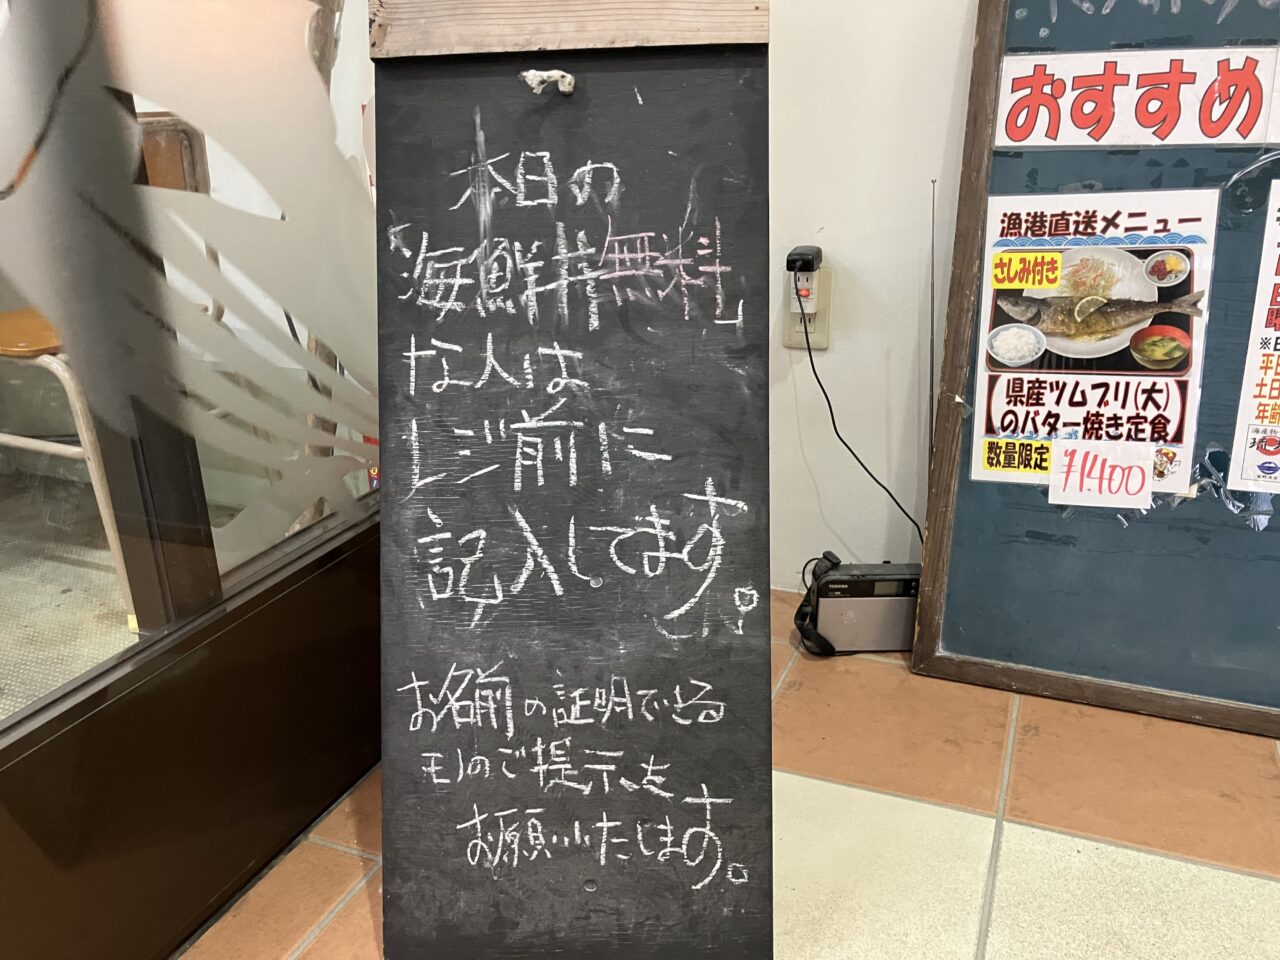 本日の
「海鮮丼無料」
な人は
レジ前に
記入してます。
お名前の証明できる
モノのご提示を
お願いいたします。
おすすめ
漁港直送メニュー
さしみ付き
県産ツムブリ(大)
のバター焼き定食
数量限定
¥1.400
TOSHIBA
※日
平日
土日
年齢